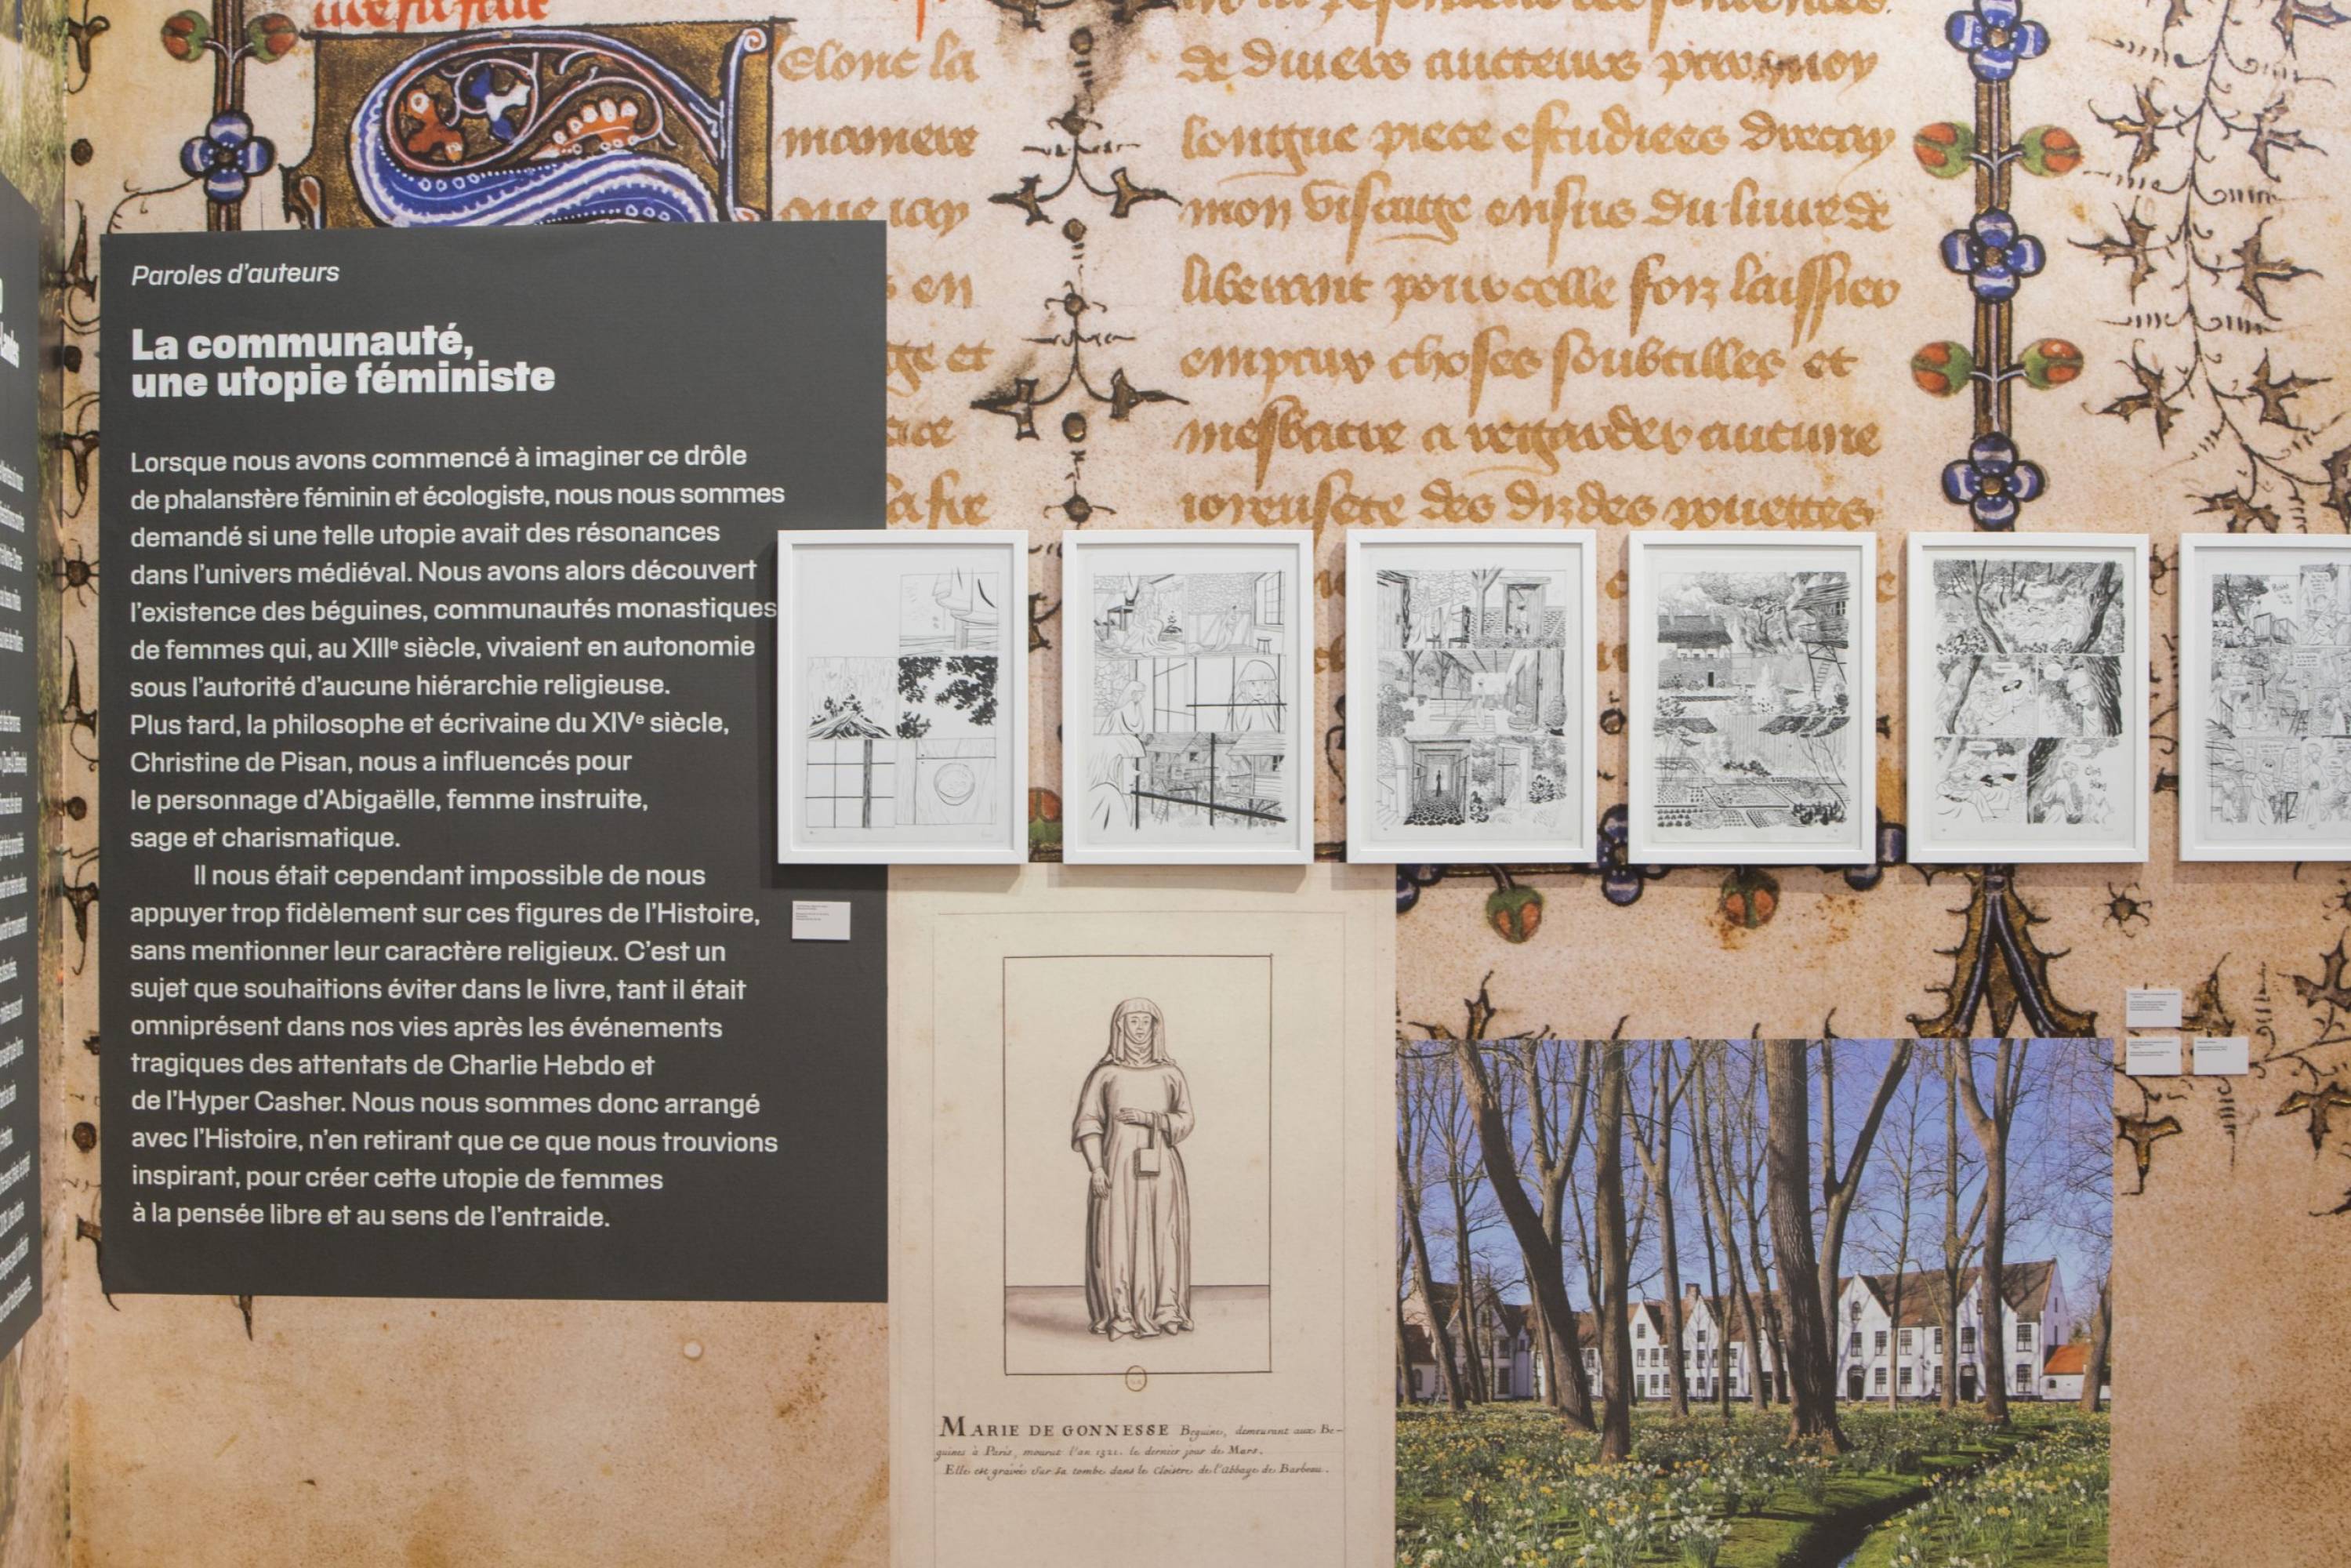 Elonc la
maniere
que iay
en
ge et
la fie
de divers aucteurs par moy
longue piece estudiees drecay
mon visaige ensus du livre de
empaux choses soubtilles et
mesbatre a regarder aucune
ioyeusete des diz des pouettes
Paroles d'auteurs
La communauté,
une utopie féministe
Lorsque nous avons commencé à imaginer ce drôle
de phalanstère féminin et écologiste, nous nous sommes
demandé si une telle utopie avait des résonances
dans l'univers médiéval. Nous avons alors découvert
l'existence des béguines, communautés monastiques
de femmes qui, au XIIIᵉ siècle, vivaient en autonomie
sous l'autorité d'aucune hiérarchie religieuse.
Plus tard, la philosophe et écrivaine du XIVᵉ siècle,
Christine de Pisan, nous a influencés pour
le personnage d'Abigaëlle, femme instruite,
sage et charismatique.
Il nous était cependant impossible de nous
appuyer trop fidèlement sur ces figures de l'Histoire,
sans mentionner leur caractère religieux. C'est un
sujet que souhaitions éviter dans le livre, tant il était
omniprésent dans nos vies après les événements
tragiques des attentats de Charlie Hebdo et
de l'Hyper Casher. Nous nous sommes donc arrangé
avec l'Histoire, n'en retirant que ce que nous trouvions
inspirant, pour créer cette utopie de femmes
à la pensée libre et au sens de l'entraide.
MARIE DE GONNESSE Beguine, demeurant aux Be-
guines à Paris, mourut l'an 1321. le dernier jour de Mars.
Elle est gravée sur sa tombe dans le Cloistre de l'Abbaye de Barbeau.